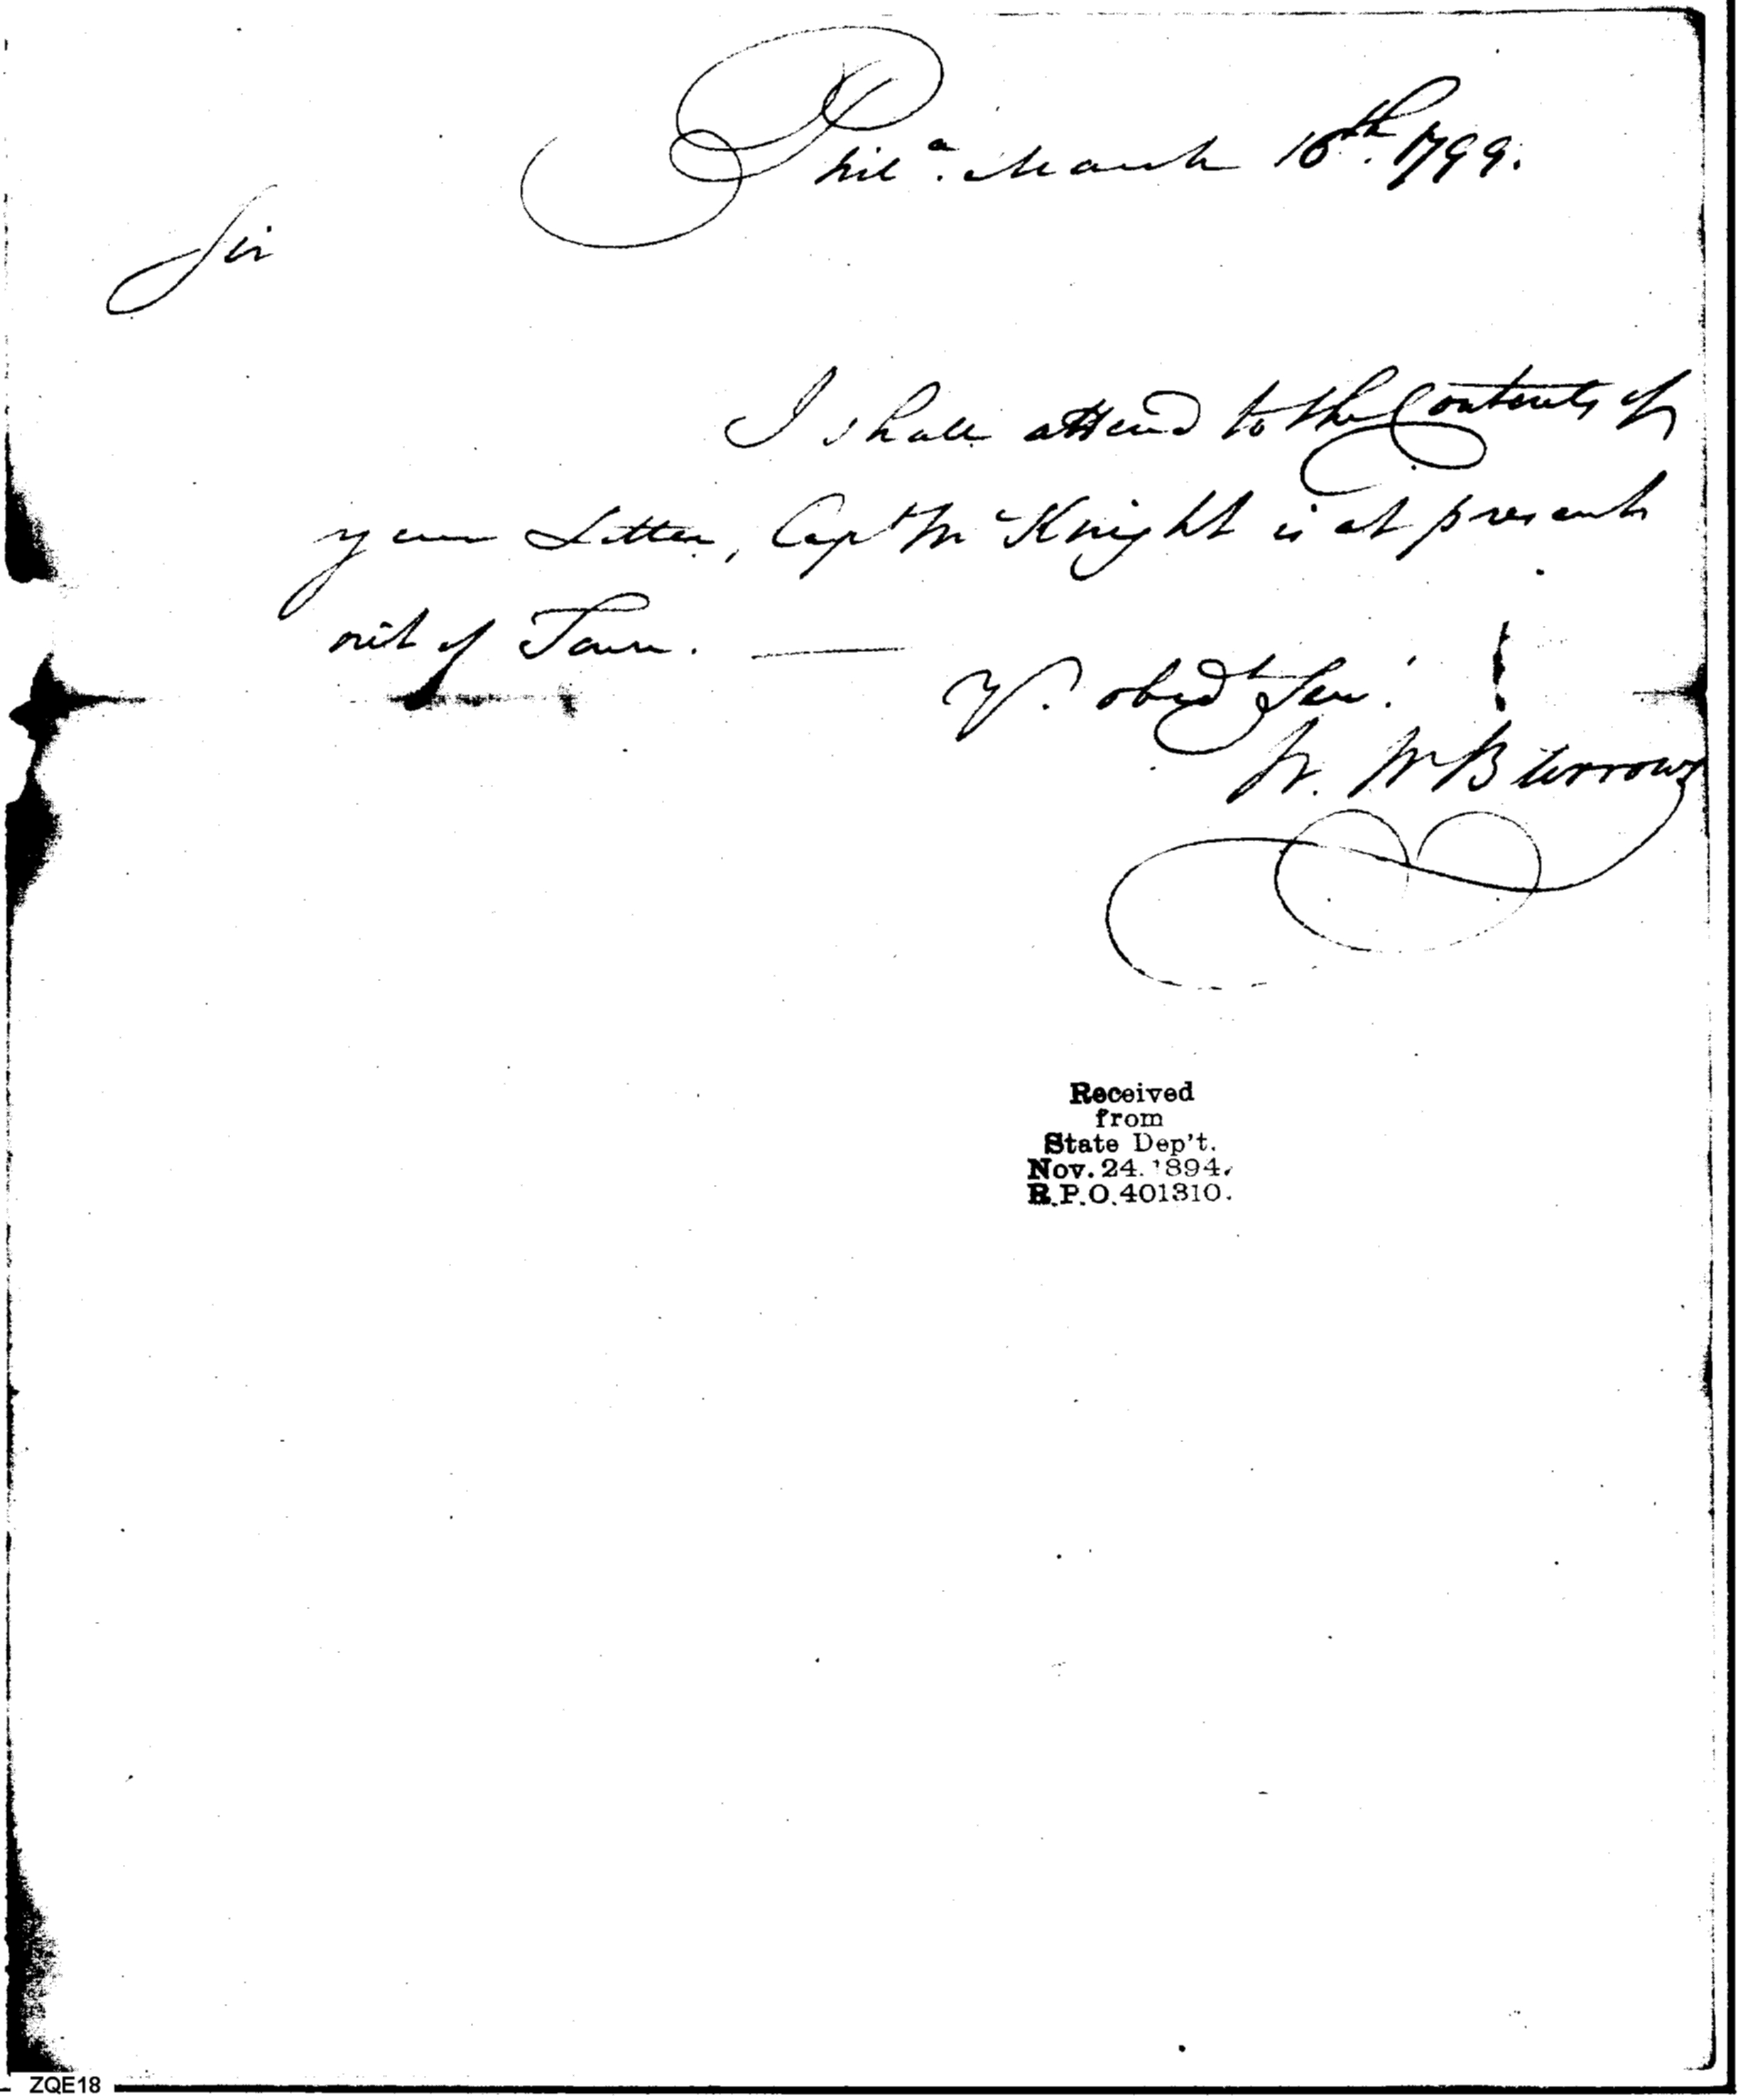 Phila. March 18th. 1799.
Sir
I shall attend to the Contents of
your Letter, Capt McKnight is at present
out of Town. ———
Yr. obedt Servt.
W. W Burrows
Received
from
State Dep't.
Nov. 24. 1894.
R.P.O. 401310.
ZQE18